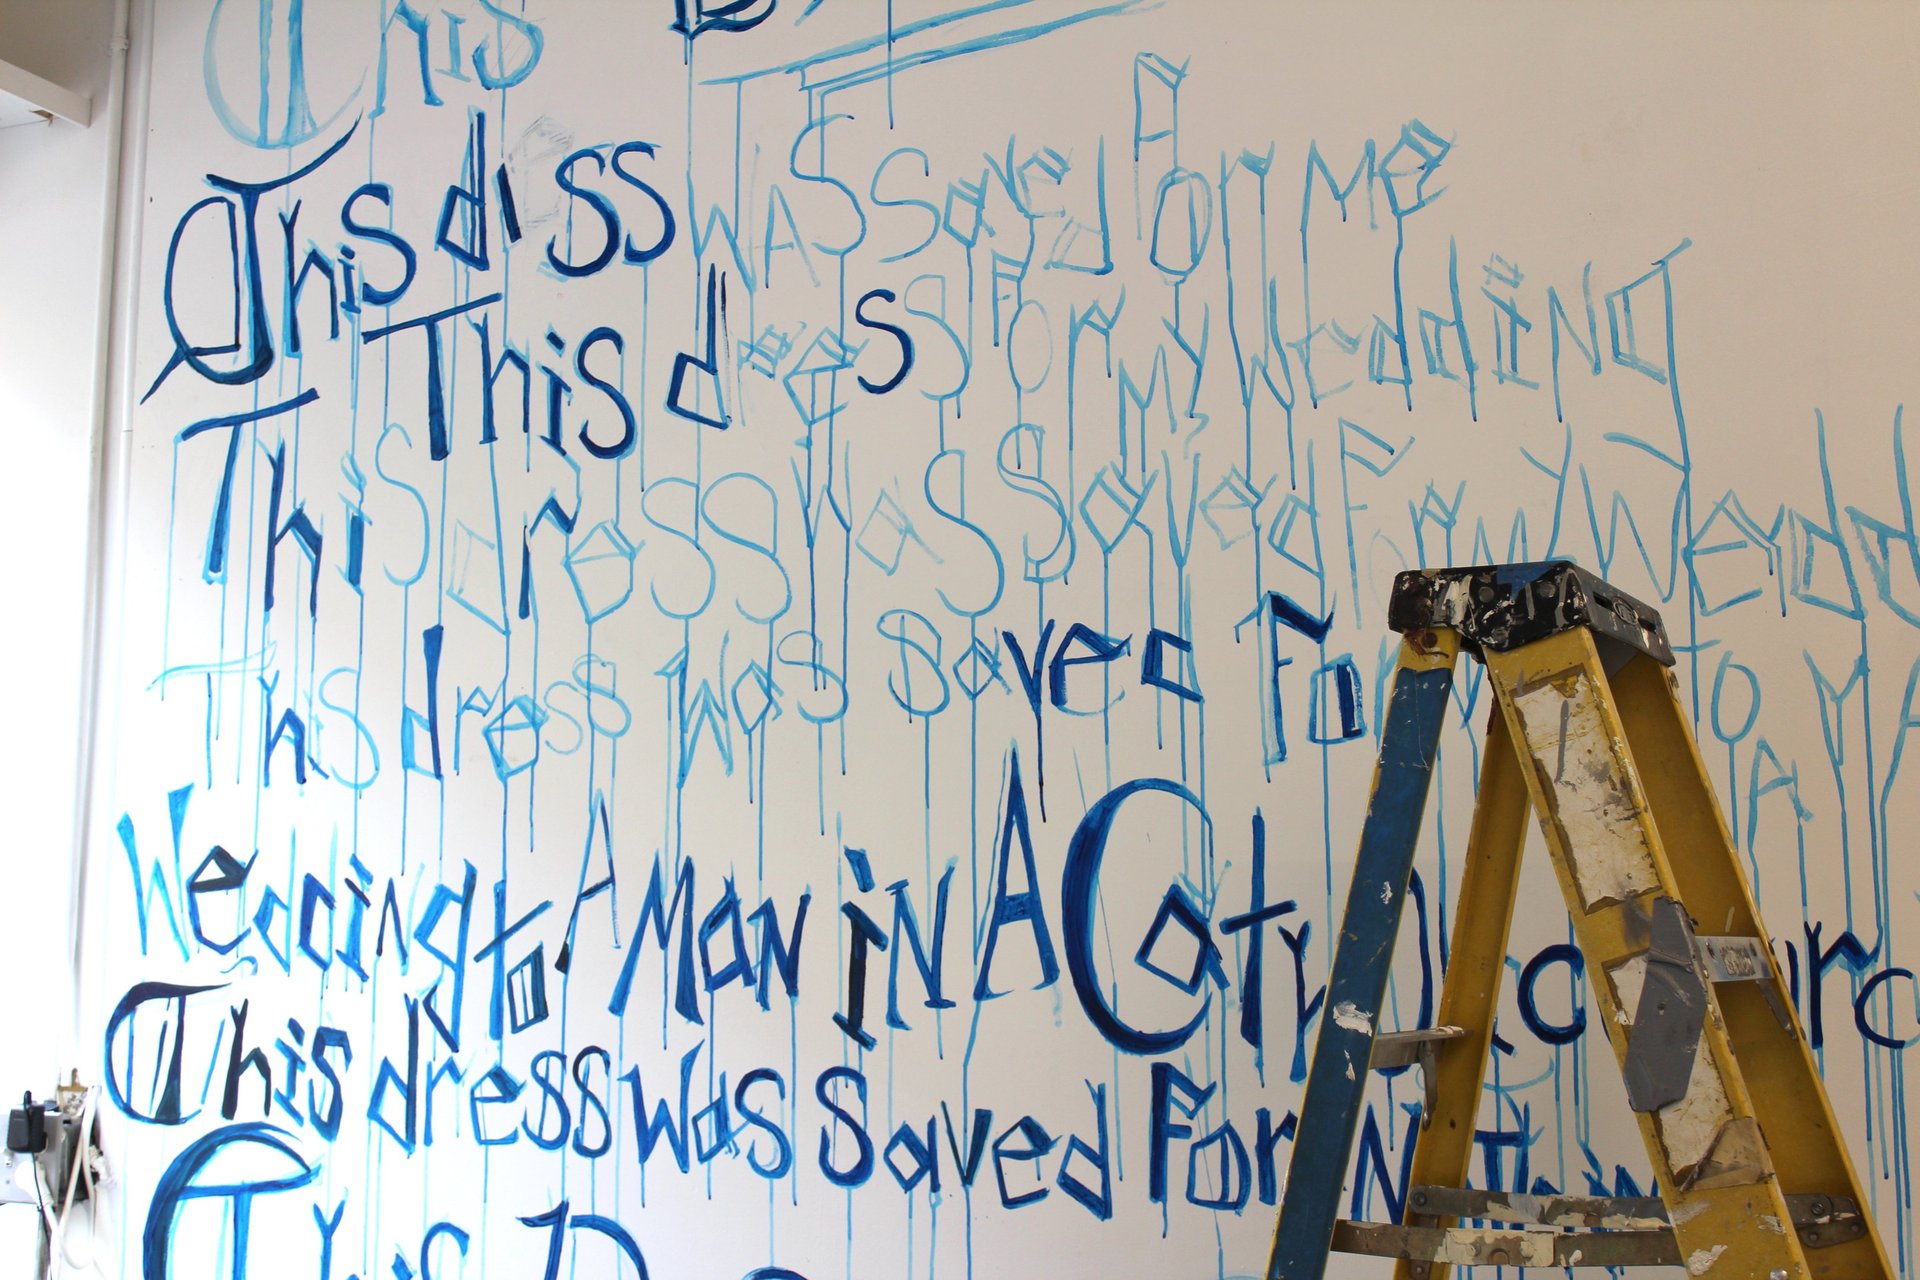 This
This diss WAS Saved FOr Me
This dress FOr My Wedding
This dress was Saved For My Wedd
This dress was Saved For TO A MA
Wedding to A Man in A Caty
This dress Was Saved For Nothin
This D